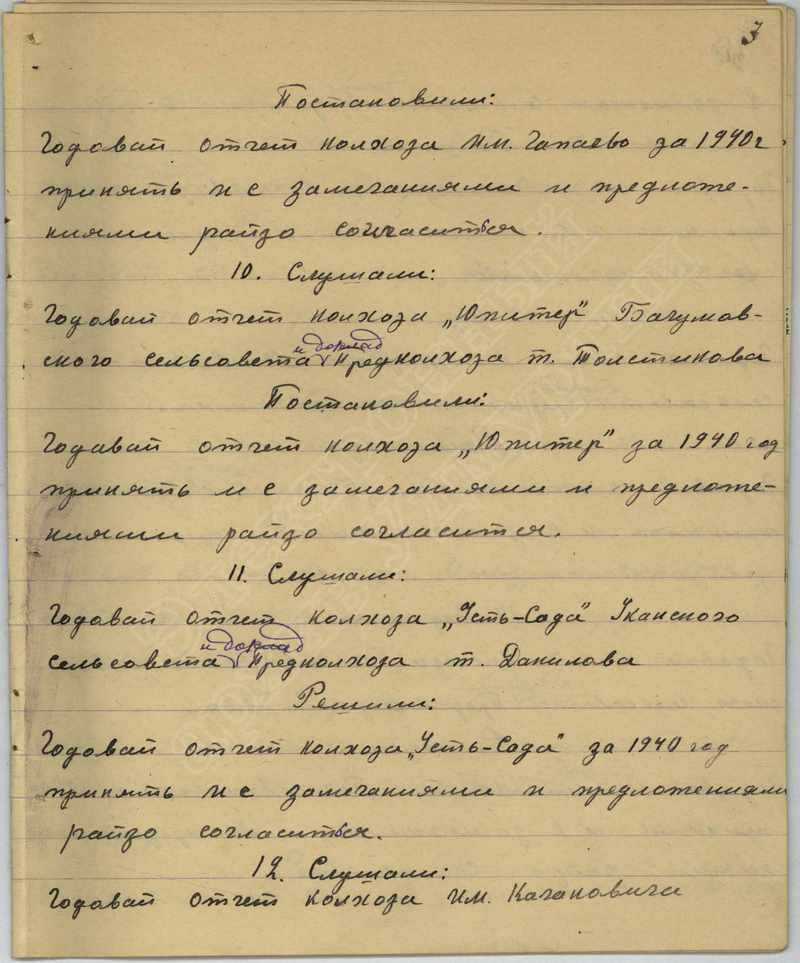 3
Постановили:
Годовай отчет колхоза им. Чапаево за 1940 г
принять и с замечаниями и предложе-
ниями райзо согласиться.
10. Слушали:
Годовай отчет колхоза „Юпитер" Багумов-
ского сельсовета и доклад Предколхоза т. Толстикова
Постановили:
Годавай отчет колхоза „Юпитер" за 1940 год
принять и с замечаниями и предложе-
ниями райзо согласится.
11. Слушали:
Годовай отчет колхоза „Усть-Сада" Уканского
сельсовета и доклад Предколхоза т. Данилова
Решили:
Годовай отчет колхоза „Усть-Сада" за 1940 год
принять и с замечаниями и предложениями
райзо согласиться.
12. Слушали:
Годовай отчет колхоза им. Кагановича